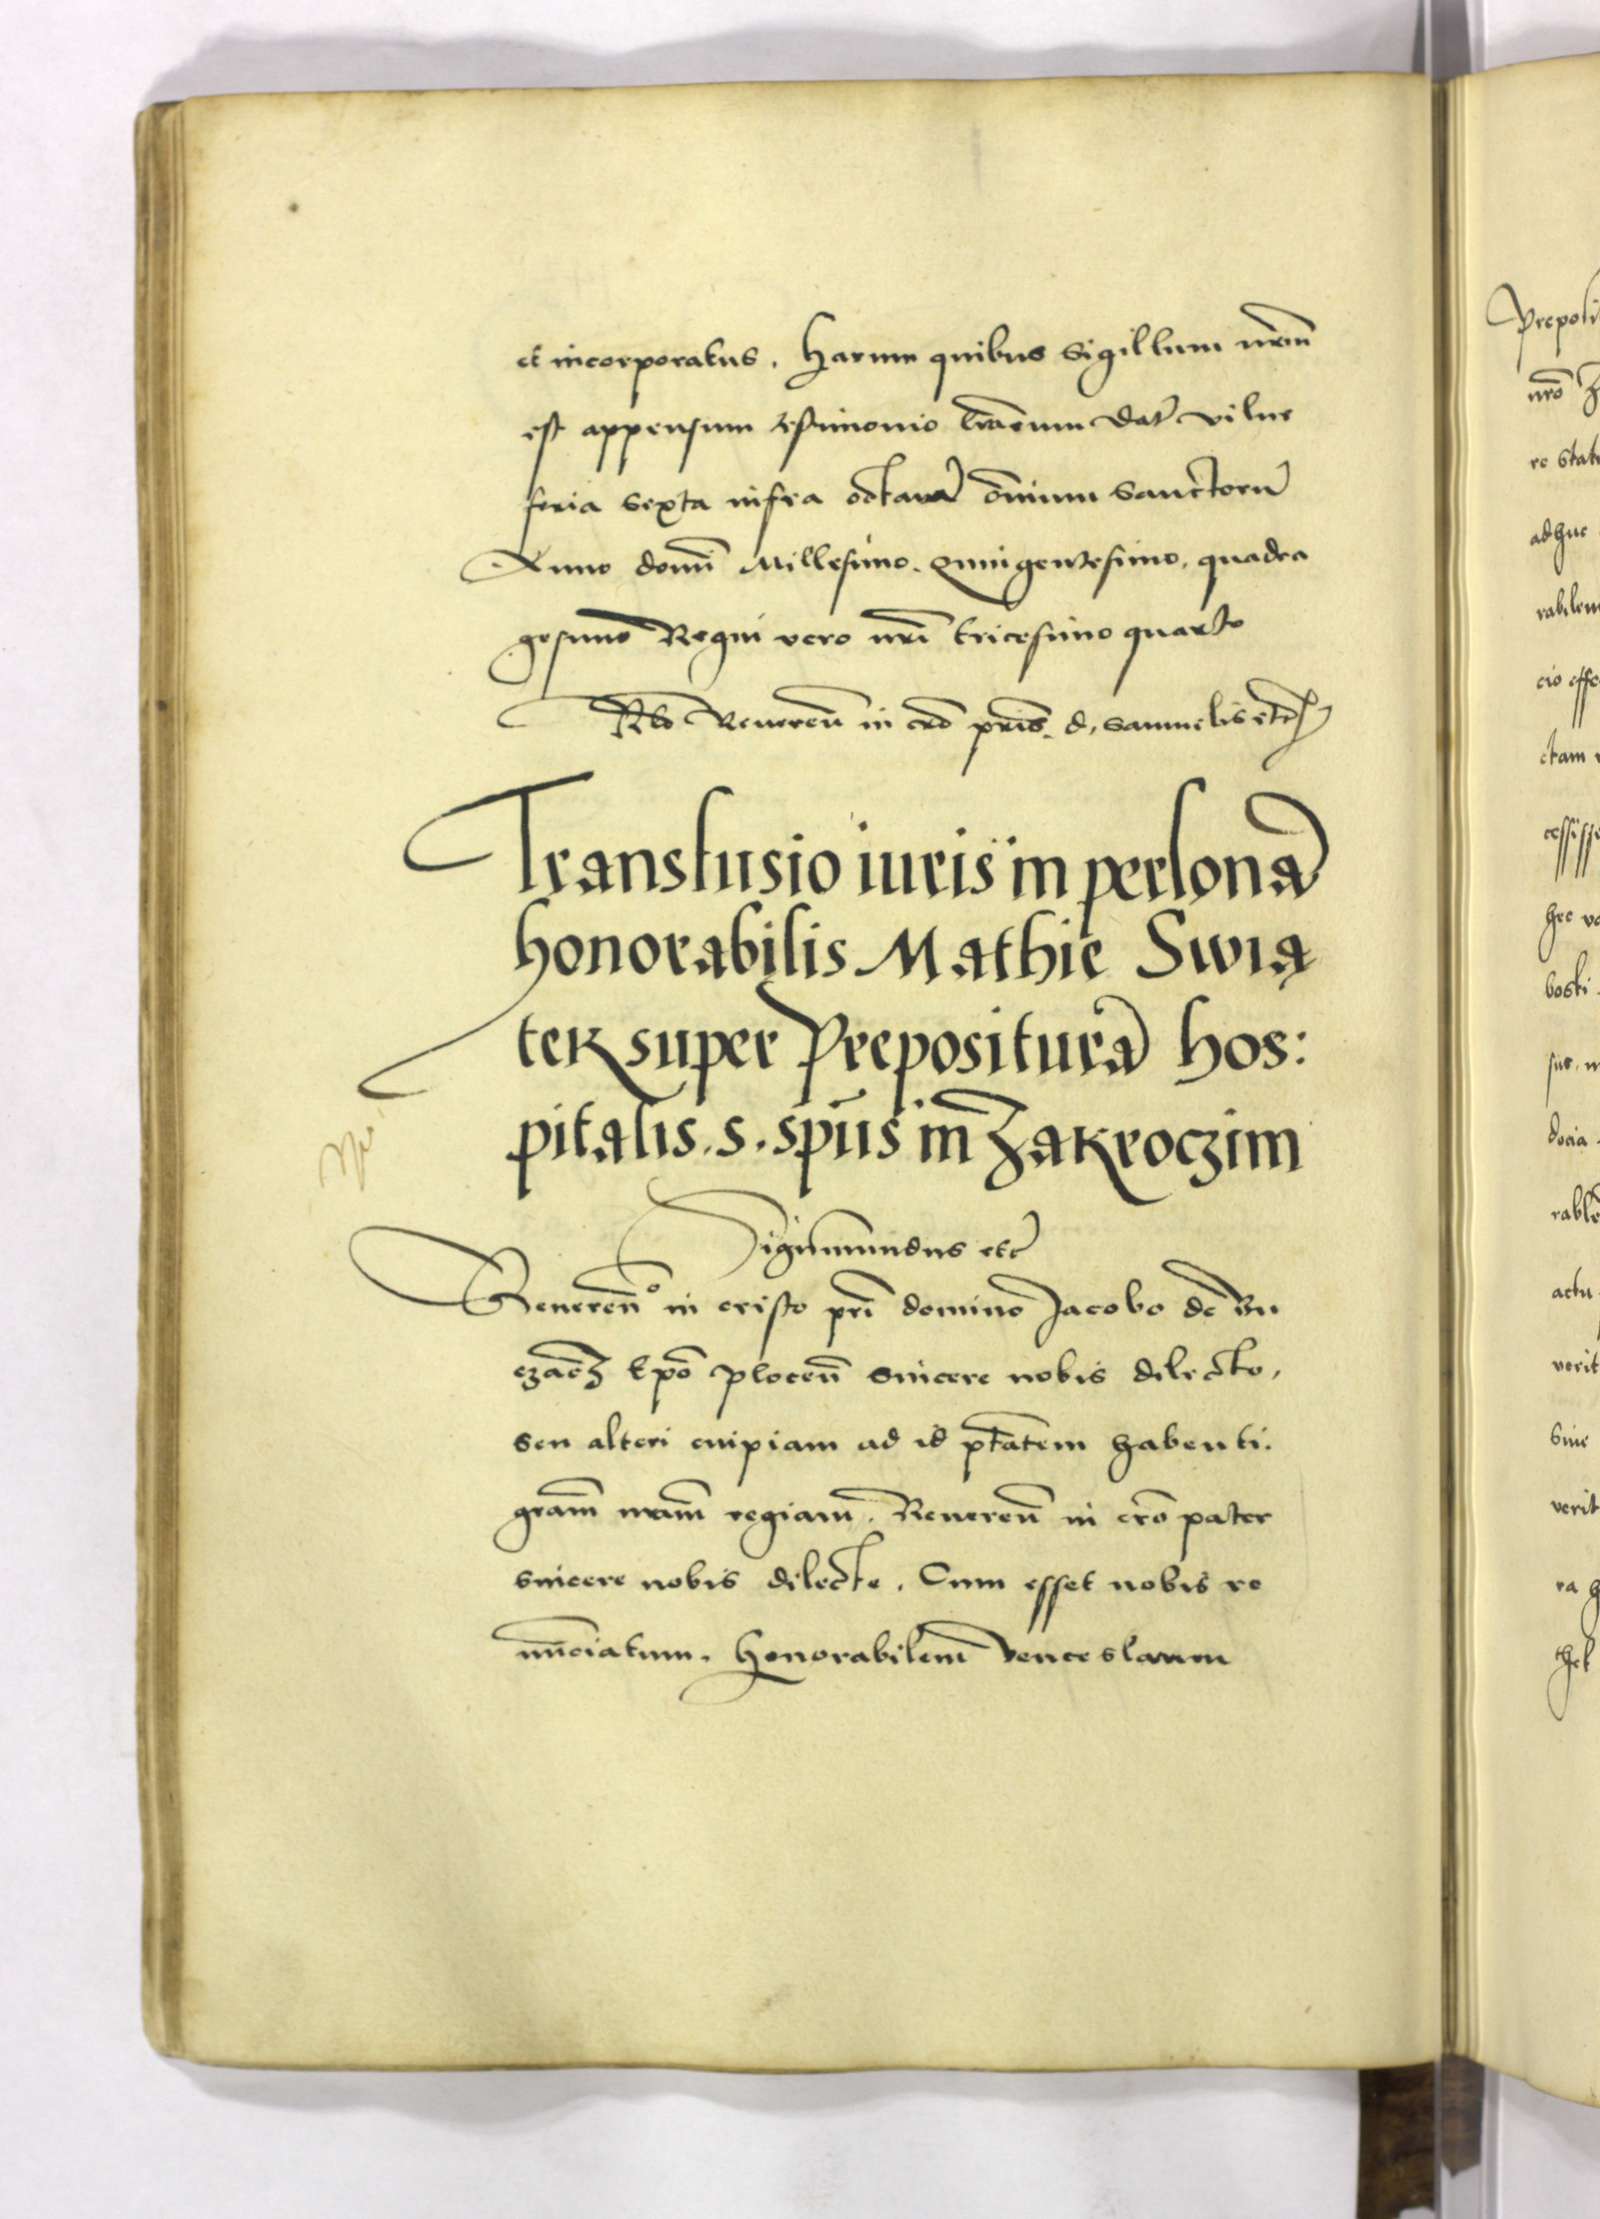 et incorporatus. Harum quibus sigillum nrm̄
est appensum testimonio l̄rarum dat̄ vilne
feria sexta infra octavā om̄ium sanctorū
Anno domī Millesimo. Quingentesimo. quadra
gesimo Regni vero nrī tricesimo quarto
Rlō Reuereñ in cr̄o prīs. d. samuelis etc̄
Transfusio iuris in personā
honorabilis Mathie Swią
tek super Prepositurā hos:
pitalis. s. sp̄us in Zakroczim
Sigismundus etc̄
Reuereñº in cristo prī domino Jacobo de Bu
czacz Ep̄o plocen̄ sincere nobis dilecto,
seu alteri cuipiam ad id ptātem habenti.
gram̄ nram̄ regiam̄. Reueren̄ in cr̄o pater
sincere nobis dilecte. Cum esset nobis re
nūnciatum. Honorabilem̄ Venceslaum
Preposi
nrō
re stat
adhuc
rabilem
cio effe
ctam
cessisse
hec vo
boski
sue.
docia
rablē
actu
verit
sine
verit
ra h
thek